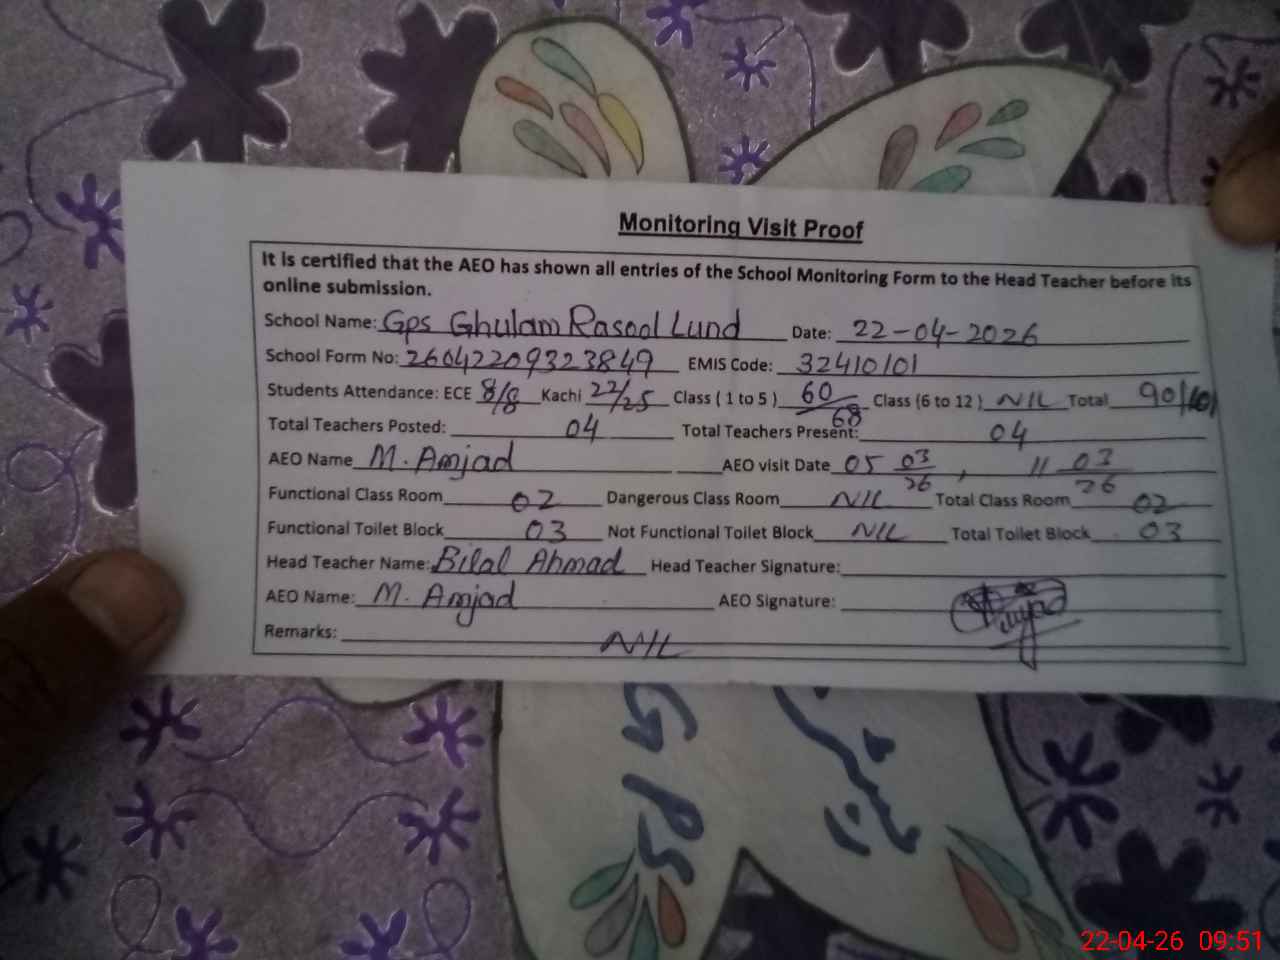 Monitoring Visit Proof
It is certified that the AEO has shown all entries of the School Monitoring Form to the Head Teacher before its
online submission.
School Name: Gps Ghulam Rasool Lund Date: 22-04-2026
School Form No: 26042209323849 EMIS Code: 32410101
Students Attendance: ECE 8/8 Kachi 22/25 Class ( 1 to 5 ) 60/68 Class (6 to 12 ) NIL Total 90/101
Total Teachers Posted: 04 Total Teachers Present: 04
AEO Name M. Amjad AEO visit Date 05 03/26 , 11 03/26
Functional Class Room 02 Dangerous Class Room NIL Total Class Room 02
Functional Toilet Block 03 Not Functional Toilet Block NIL Total Toilet Block 03
Head Teacher Name: Bilal Ahmad Head Teacher Signature:
AEO Name: M. Amjad AEO Signature:
Remarks: NIL
GPS
22-04-26 09:51